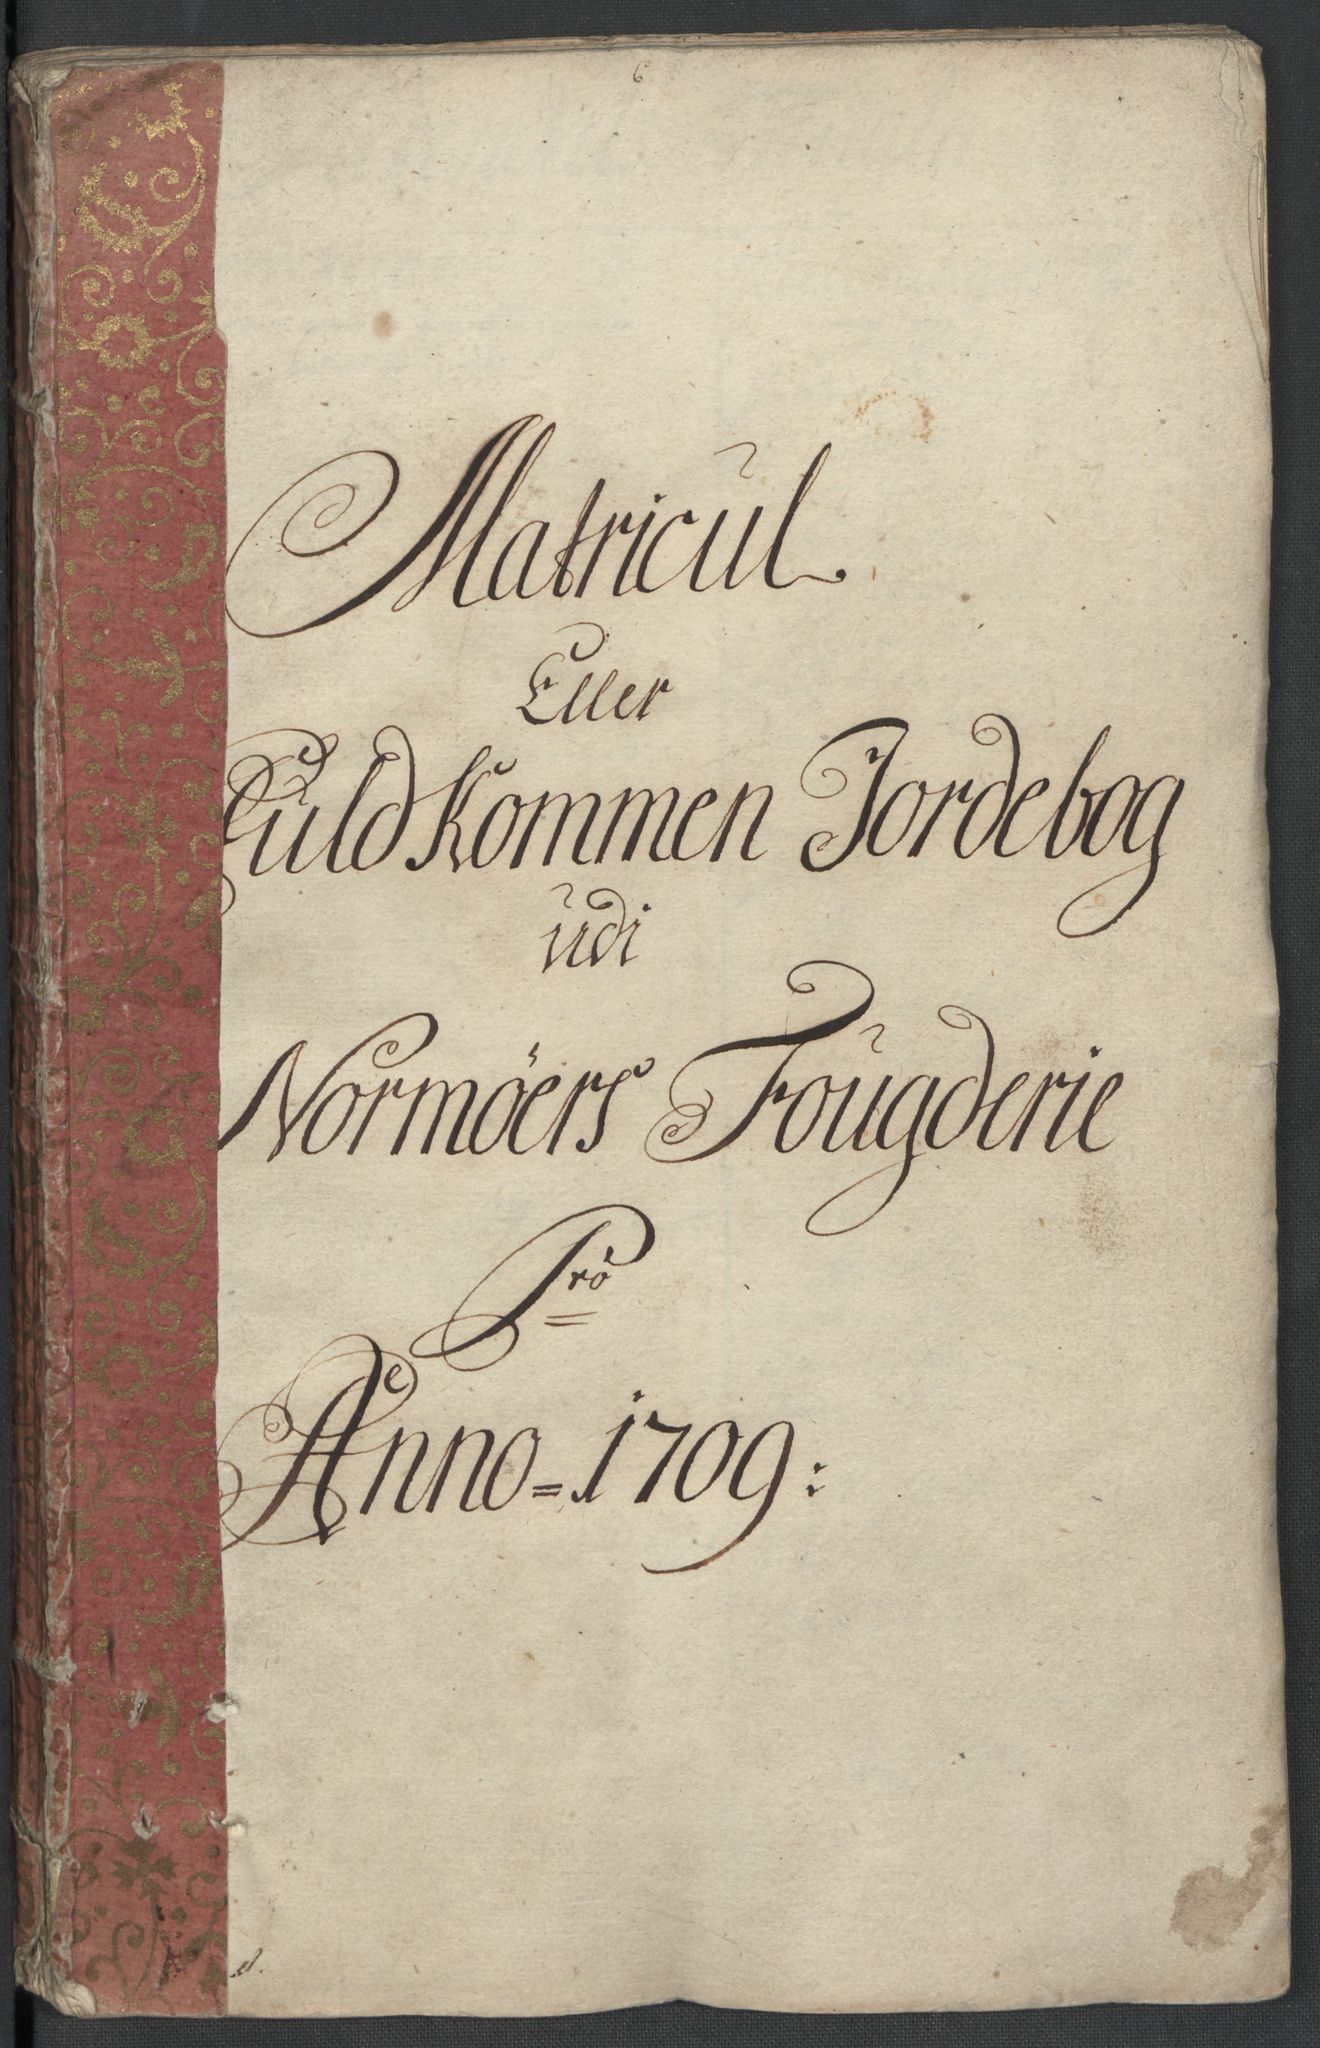 6
Matricul
Eller
Fuldkommen Jordebog
udi
Normöers Fougderie
Pro
Anno = 1709: